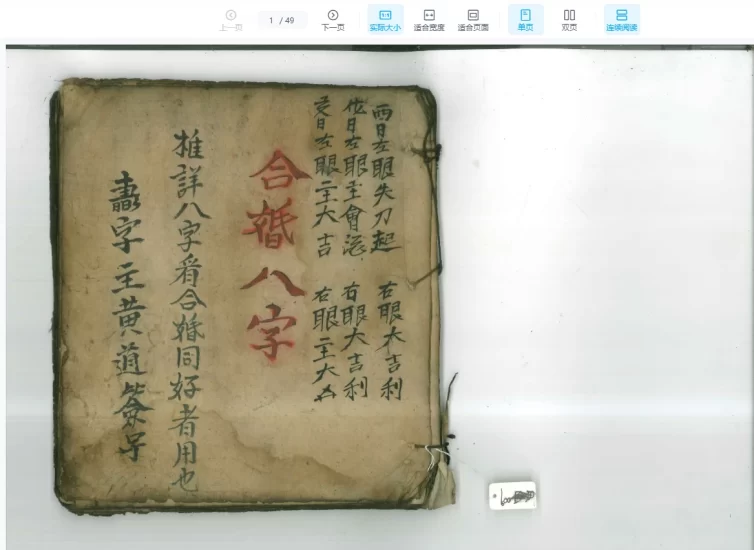 上一页
1 / 49
下一页
实际大小
适合宽度
适合页面
单页
双页
连续阅读
酉日左眼失刀起 右眼大吉利
日左眼主會 右眼大吉利
日左眼主大吉 右眼主大凶
合婚八字
推詳八字看合婚同好者用也
字主黄道